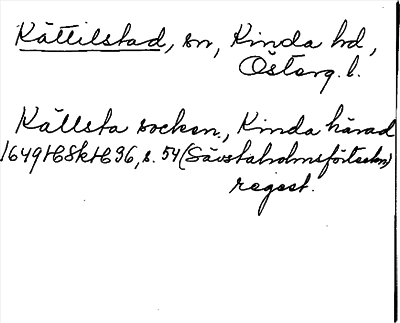 Kättilstad, sn, Kinda hd,
Österg. l.
Källsta socken, Kinda härad
1649 HSH 96, s. 54 (Sävstaholmsförteckn)
regest.